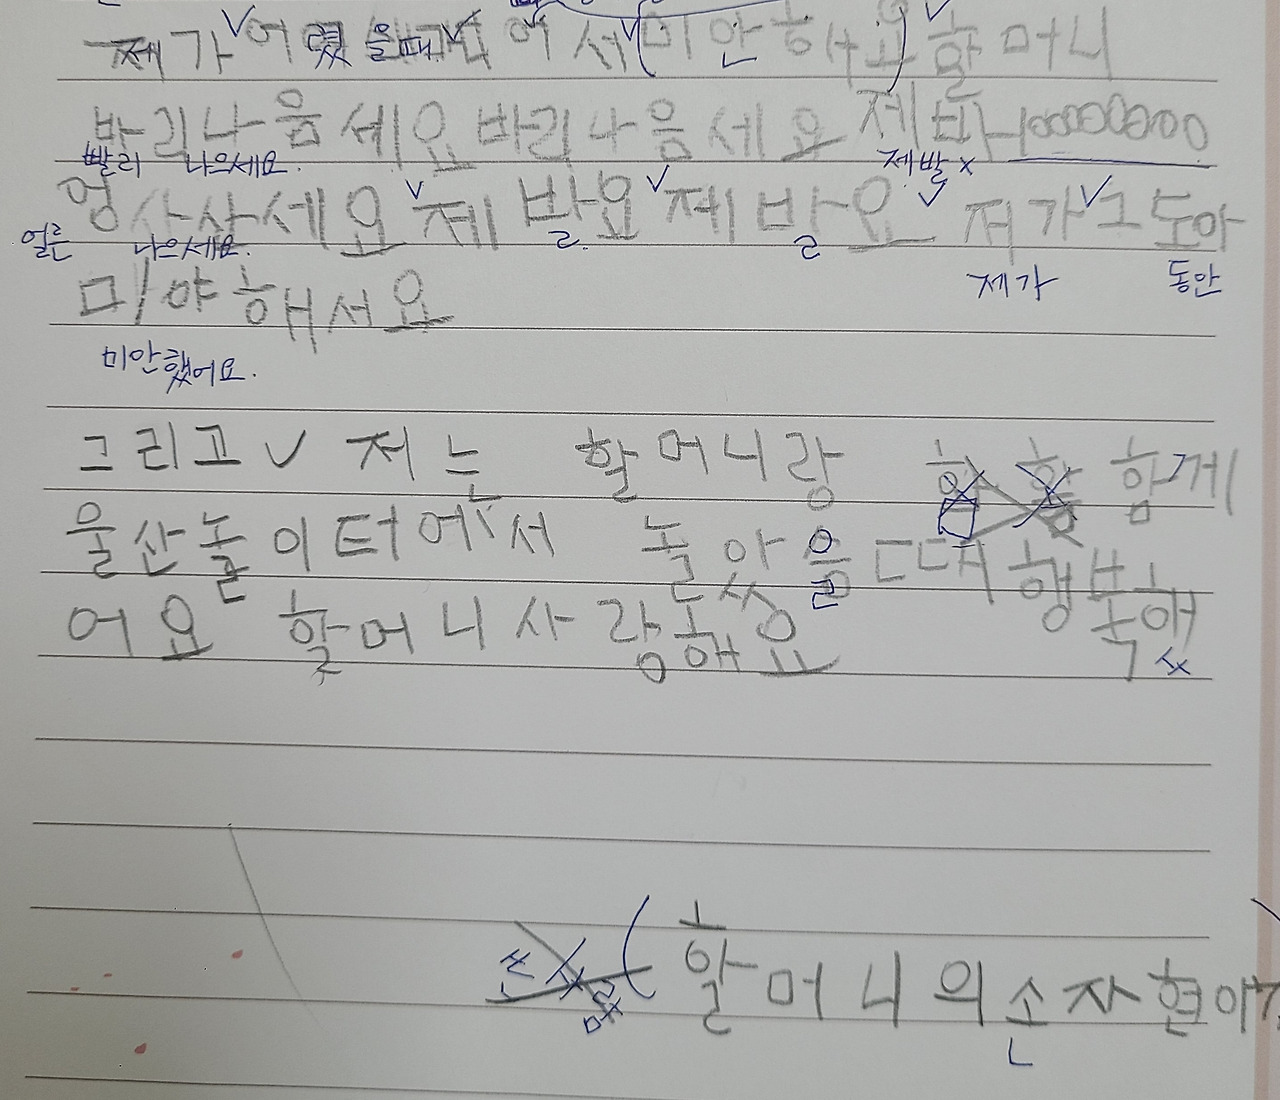 제가 어렸을때 어서 미안해요 할머니
바리나음세요 바리나음세요 제바 1000000000
빨리 나으세요. 제발 x
엉사사세요 제발요 제바요 저가 그 도아
얼른 나으세요. ㄹ. ㄹ 제가 동안
미야해서요
미안했어요.
그리고 저는 할머니랑 함께
울산놀이터에서 놀았을때 행복했
어요 할머니사랑해요
할머니의손자현이가